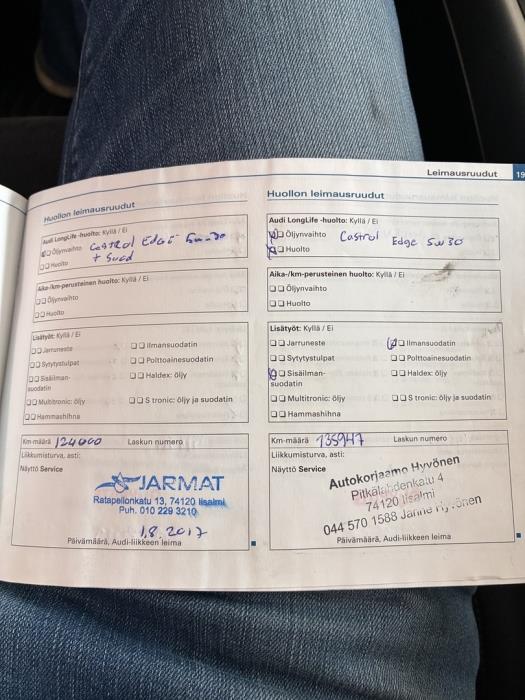 Leimausruudut 19
Huollon leimausruudut
Audi LongLife -huolto: Kyllä / Ei
Öljynvaihto Castrol Edge 5w-30
+ Suod
Huolto
Aika-/km-perusteinen huolto: Kyllä / Ei
Öljynvaihto
Huolto
Lisätyöt: Kyllä / Ei
Jarruneste
Ilmansuodatin
Sytytystulpat
Polttoainesuodatin
Sisäilman-
suodatin
Haldex: öljy
Multitronic: öljy
S tronic: öljy ja suodatin
Hammashihna
Km-määrä 124000 Laskun numero
Liikkumisturva, asti:
Näyttö Service
JARMAT
Ratapellonkatu 13, 74120 Iisalmi
Puh. 010 229 3210
1.8.2017
Päivämäärä, Audi-liikkeen leima
Huollon leimausruudut
Audi LongLife -huolto: Kyllä / Ei
Öljynvaihto Castrol Edge 5w30
Huolto
Aika-/km-perusteinen huolto: Kyllä / Ei
Öljynvaihto
Huolto
Lisätyöt: Kyllä / Ei
Jarruneste
Ilmansuodatin
Sytytystulpat
Polttoainesuodatin
Sisäilman-
suodatin
Haldex: öljy
Multitronic: öljy
S tronic: öljy ja suodatin
Hammashihna
Km-määrä 135947 Laskun numero
Liikkumisturva, asti:
Näyttö Service
Autokorjaamo Hyvönen
4
74120 Iisalmi
044 570 1588 Janne Hyvönen
Päivämäärä, Audi-liikkeen leima